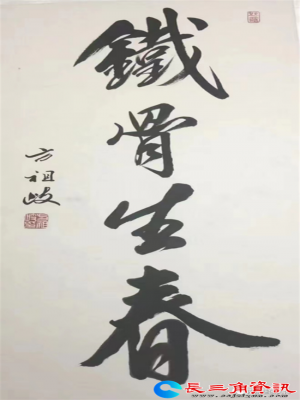 鐵骨生春
方祖岐
長三角資訊